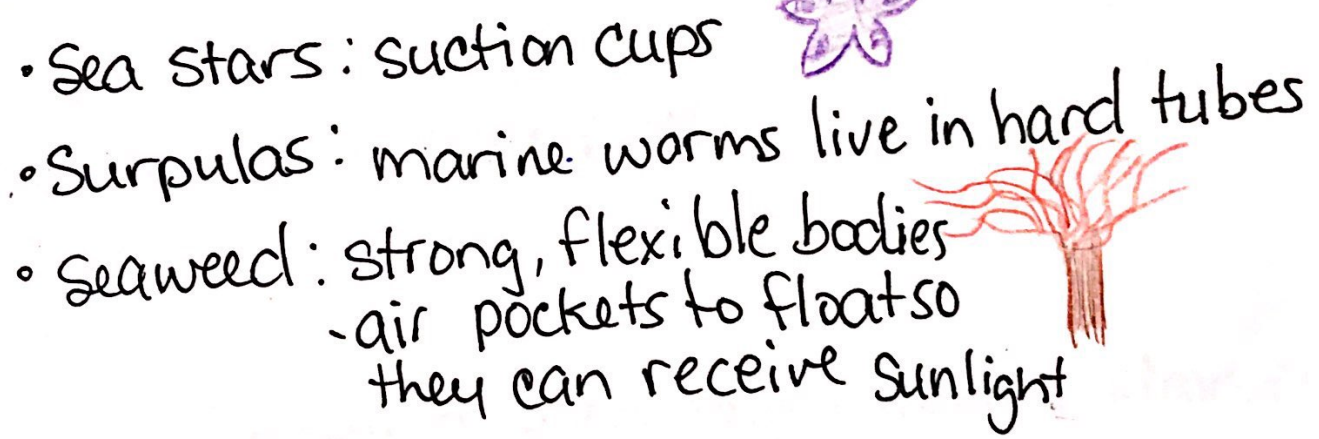 • Sea stars: suction cups
• Surpulas: marine worms live in hard tubes
• Seaweed: strong, flexible bodies
-air pockets to float so
they can receive sunlight